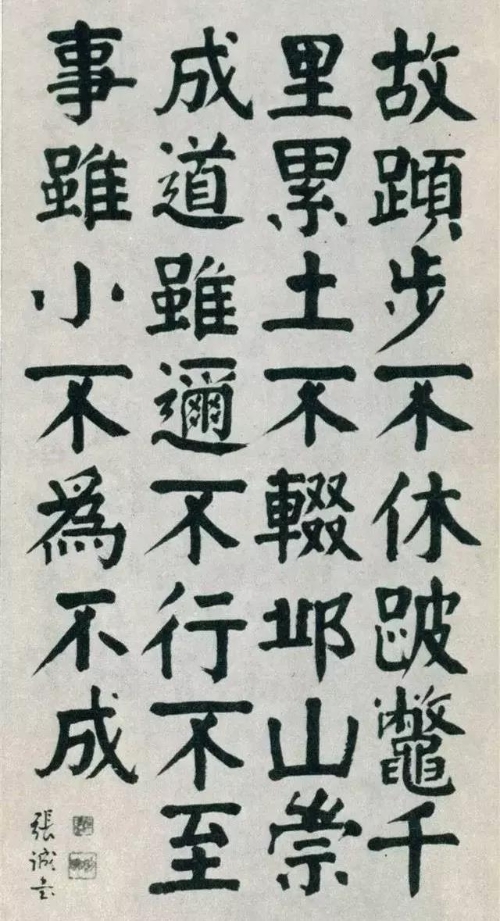 故蹞步不休跛鼈千
里累土不輟邱山崇
成道雖邇不行不至
事雖小不為不成
張誠